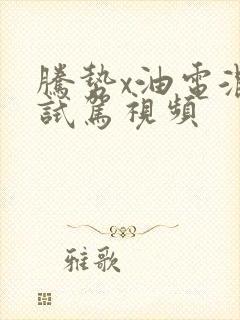 騰勢x油電混
試駕視頻
雅歌